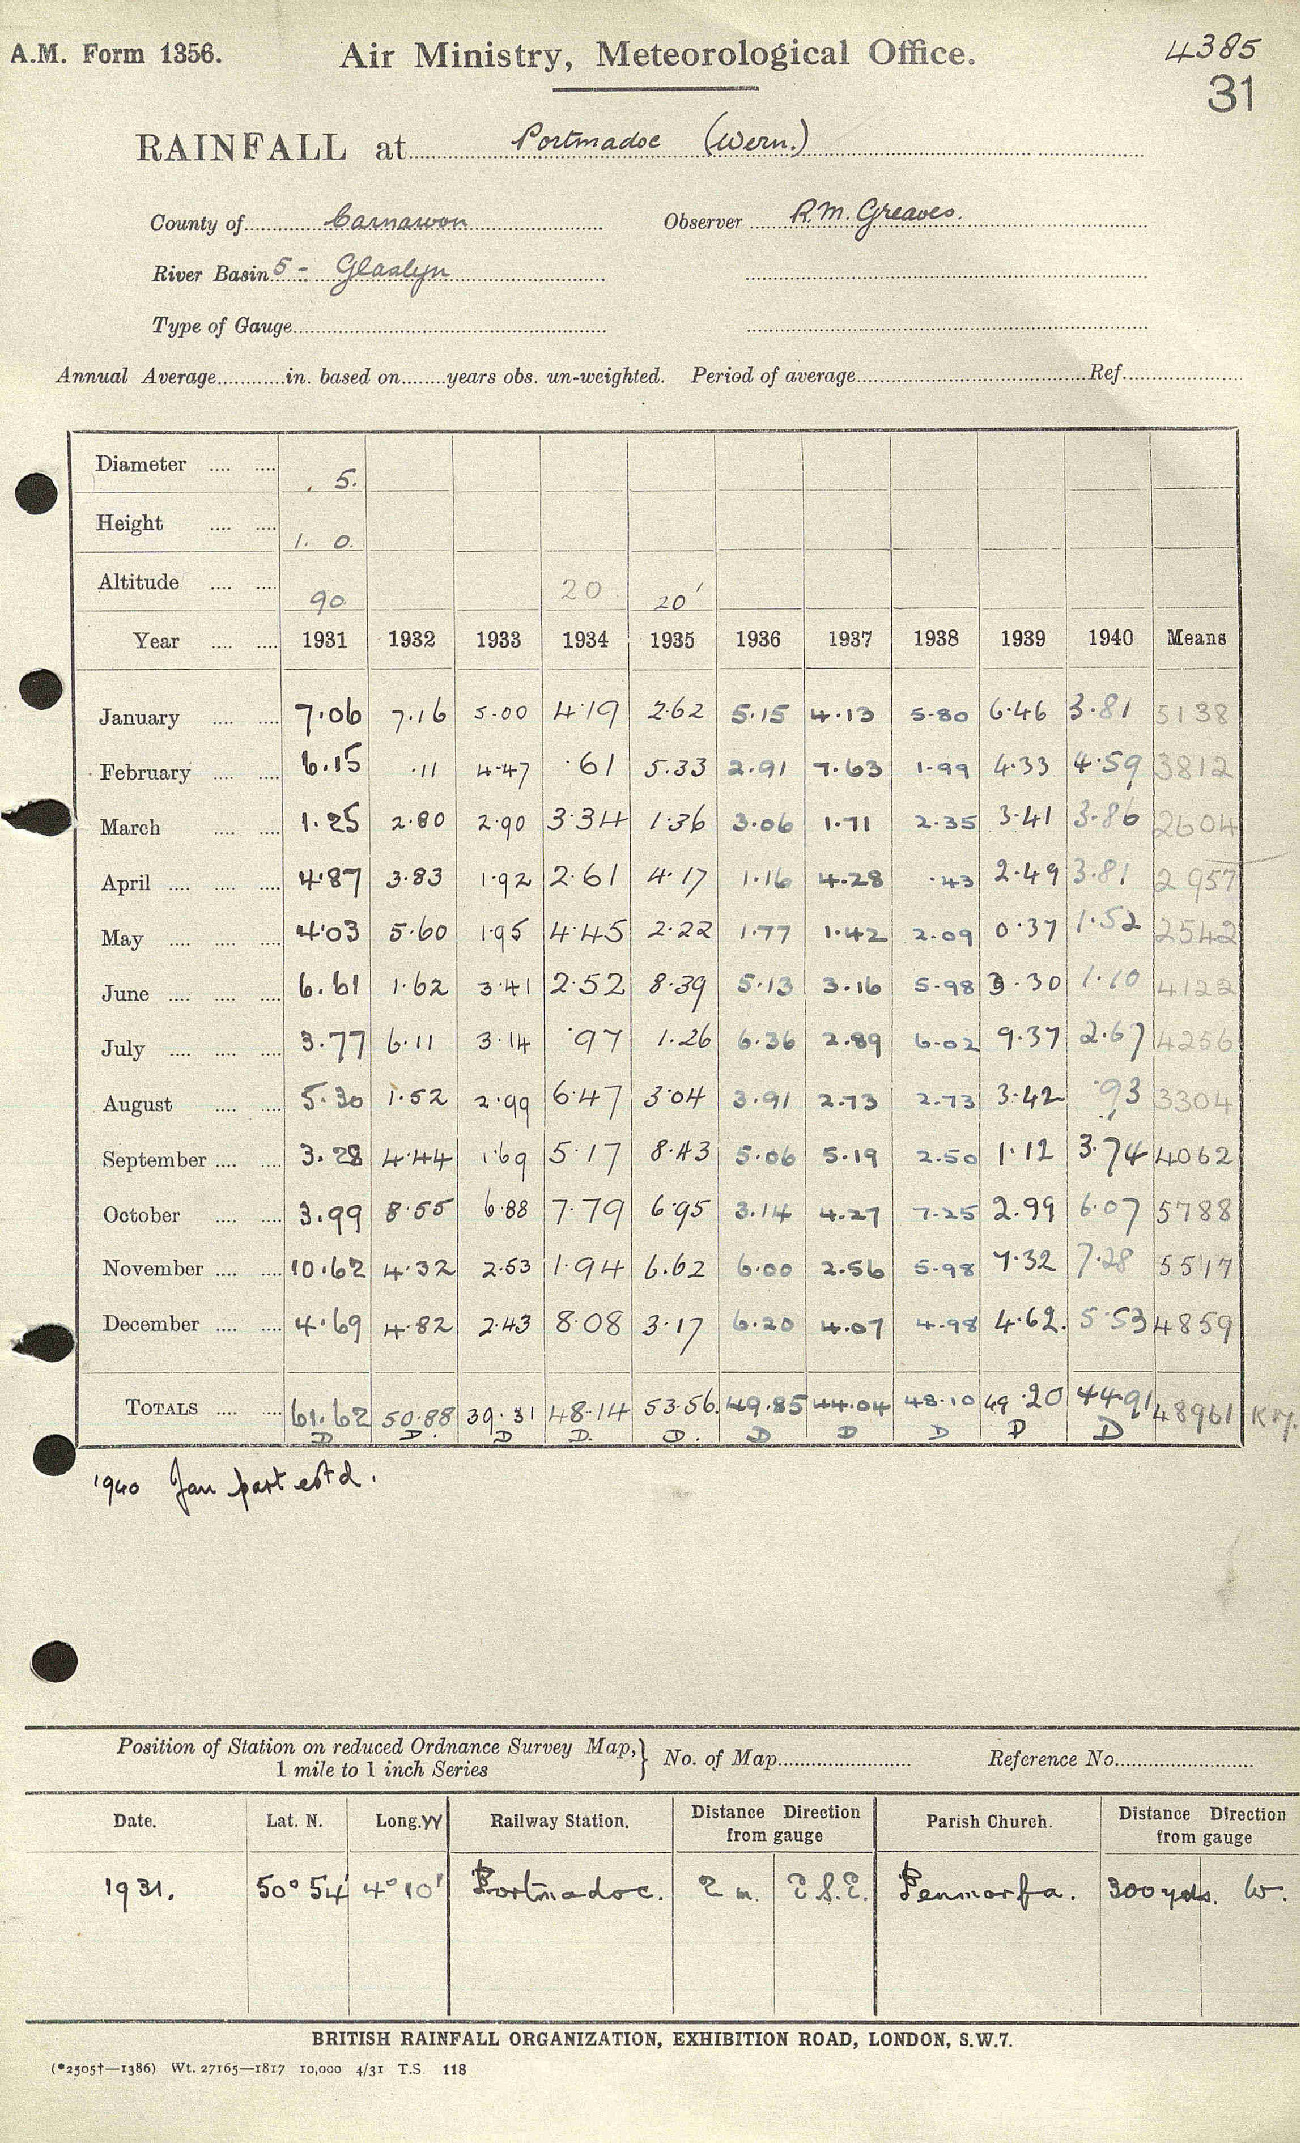 A.M. Form 1356. Air Ministry, Meteorological Office. 4385
31
RAINFALL at Portmadoc (Wern.)
County of Carnarvon Observer R.M. Greaves.
River Basin 5 - Glaslyn
Type of Gauge
Annual Average in. based on years obs. un-weighted. Period of average Ref.
Diameter .... .... 5.
Height .... .... 1. 0.
Altitude .... .... 90 20 20'
Year .... .... 1931 1932 1933 1934 1935 1936 1937 1938 1939 1940 Means
January .... .... 7.06 7.16 5.00 4.19 2.62 5.15 4.13 5.80 6.46 3.81 5138
February .... .... 6.15 .11 4.47 .61 5.33 2.91 7.63 1.99 4.33 4.59 3812
March .... .... 1.25 2.80 2.90 3.34 1.36 3.06 1.71 2.35 3.41 3.86 2604
April .... .... .... 4.87 3.83 1.92 2.61 4.17 1.16 4.28 .43 2.49 3.81 2957
May .... .... .... 4.03 5.60 1.95 4.45 2.22 1.77 1.42 2.09 0.37 1.52 2542
June .... .... .... 6.61 1.62 3.41 2.52 8.39 5.13 3.16 5.98 3.30 1.10 4122
July .... .... .... 3.77 6.11 3.14 .97 1.26 6.36 2.89 6.02 9.37 2.67 4256
August .... .... 5.30 1.52 2.99 6.47 3.04 3.91 2.73 2.73 3.42 .93 3304
September .... .... 3.28 4.44 1.69 5.17 8.43 5.06 5.19 2.50 1.12 3.74 4062
October .... .... 3.99 8.55 6.88 7.79 6.95 3.14 4.27 7.25 2.99 6.07 5788
November .... .... 10.62 4.32 2.53 1.94 6.62 6.00 2.56 5.98 7.32 7.28 5517
December .... .... 4.69 4.82 2.43 8.08 3.17 6.20 4.07 4.98 4.62. 5.53 4859
TOTALS .... .... 61.62 50.88 39.31 48.14 53.56. 49.85 44.04 48.10 49.20 44.91 48961
D D. D D. D. D D D D D
1940 Jan part estd.
Position of Station on reduced Ordnance Survey Map, } No. of Map Reference No.
1 mile to 1 inch Series
Date. Lat. N. Long. W Railway Station. Distance Direction from gauge Parish Church. Distance Direction from gauge
1931. 50° 54' 4° 10' Portmadoc. 2 m. E.S.E. Penmorfa. 300 yds. W.
BRITISH RAINFALL ORGANIZATION, EXHIBITION ROAD, LONDON, S.W.7.
(*2505†—1386) Wt. 27165—1817 10,000 4/31 T.S. 118